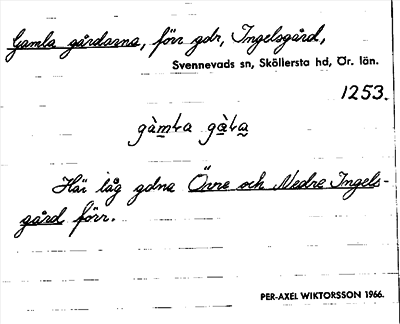 Gamla gårdarna, förr gdr, Ingelsgård,
Svennevads sn, Sköllersta hd, Ör. län.
1253.
gàmɫa gàɫa
Här låg gdna Övre och Nedre Ingels-
gård förr.
PER-AXEL WIKTORSSON 1966.